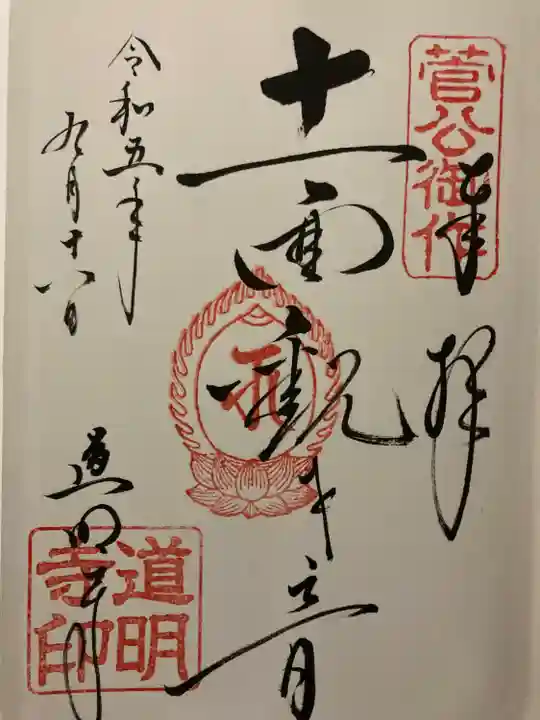 菅公御作
奉拝
十一面観世音
令和五年
九月十八日
道明寺
道明
寺印